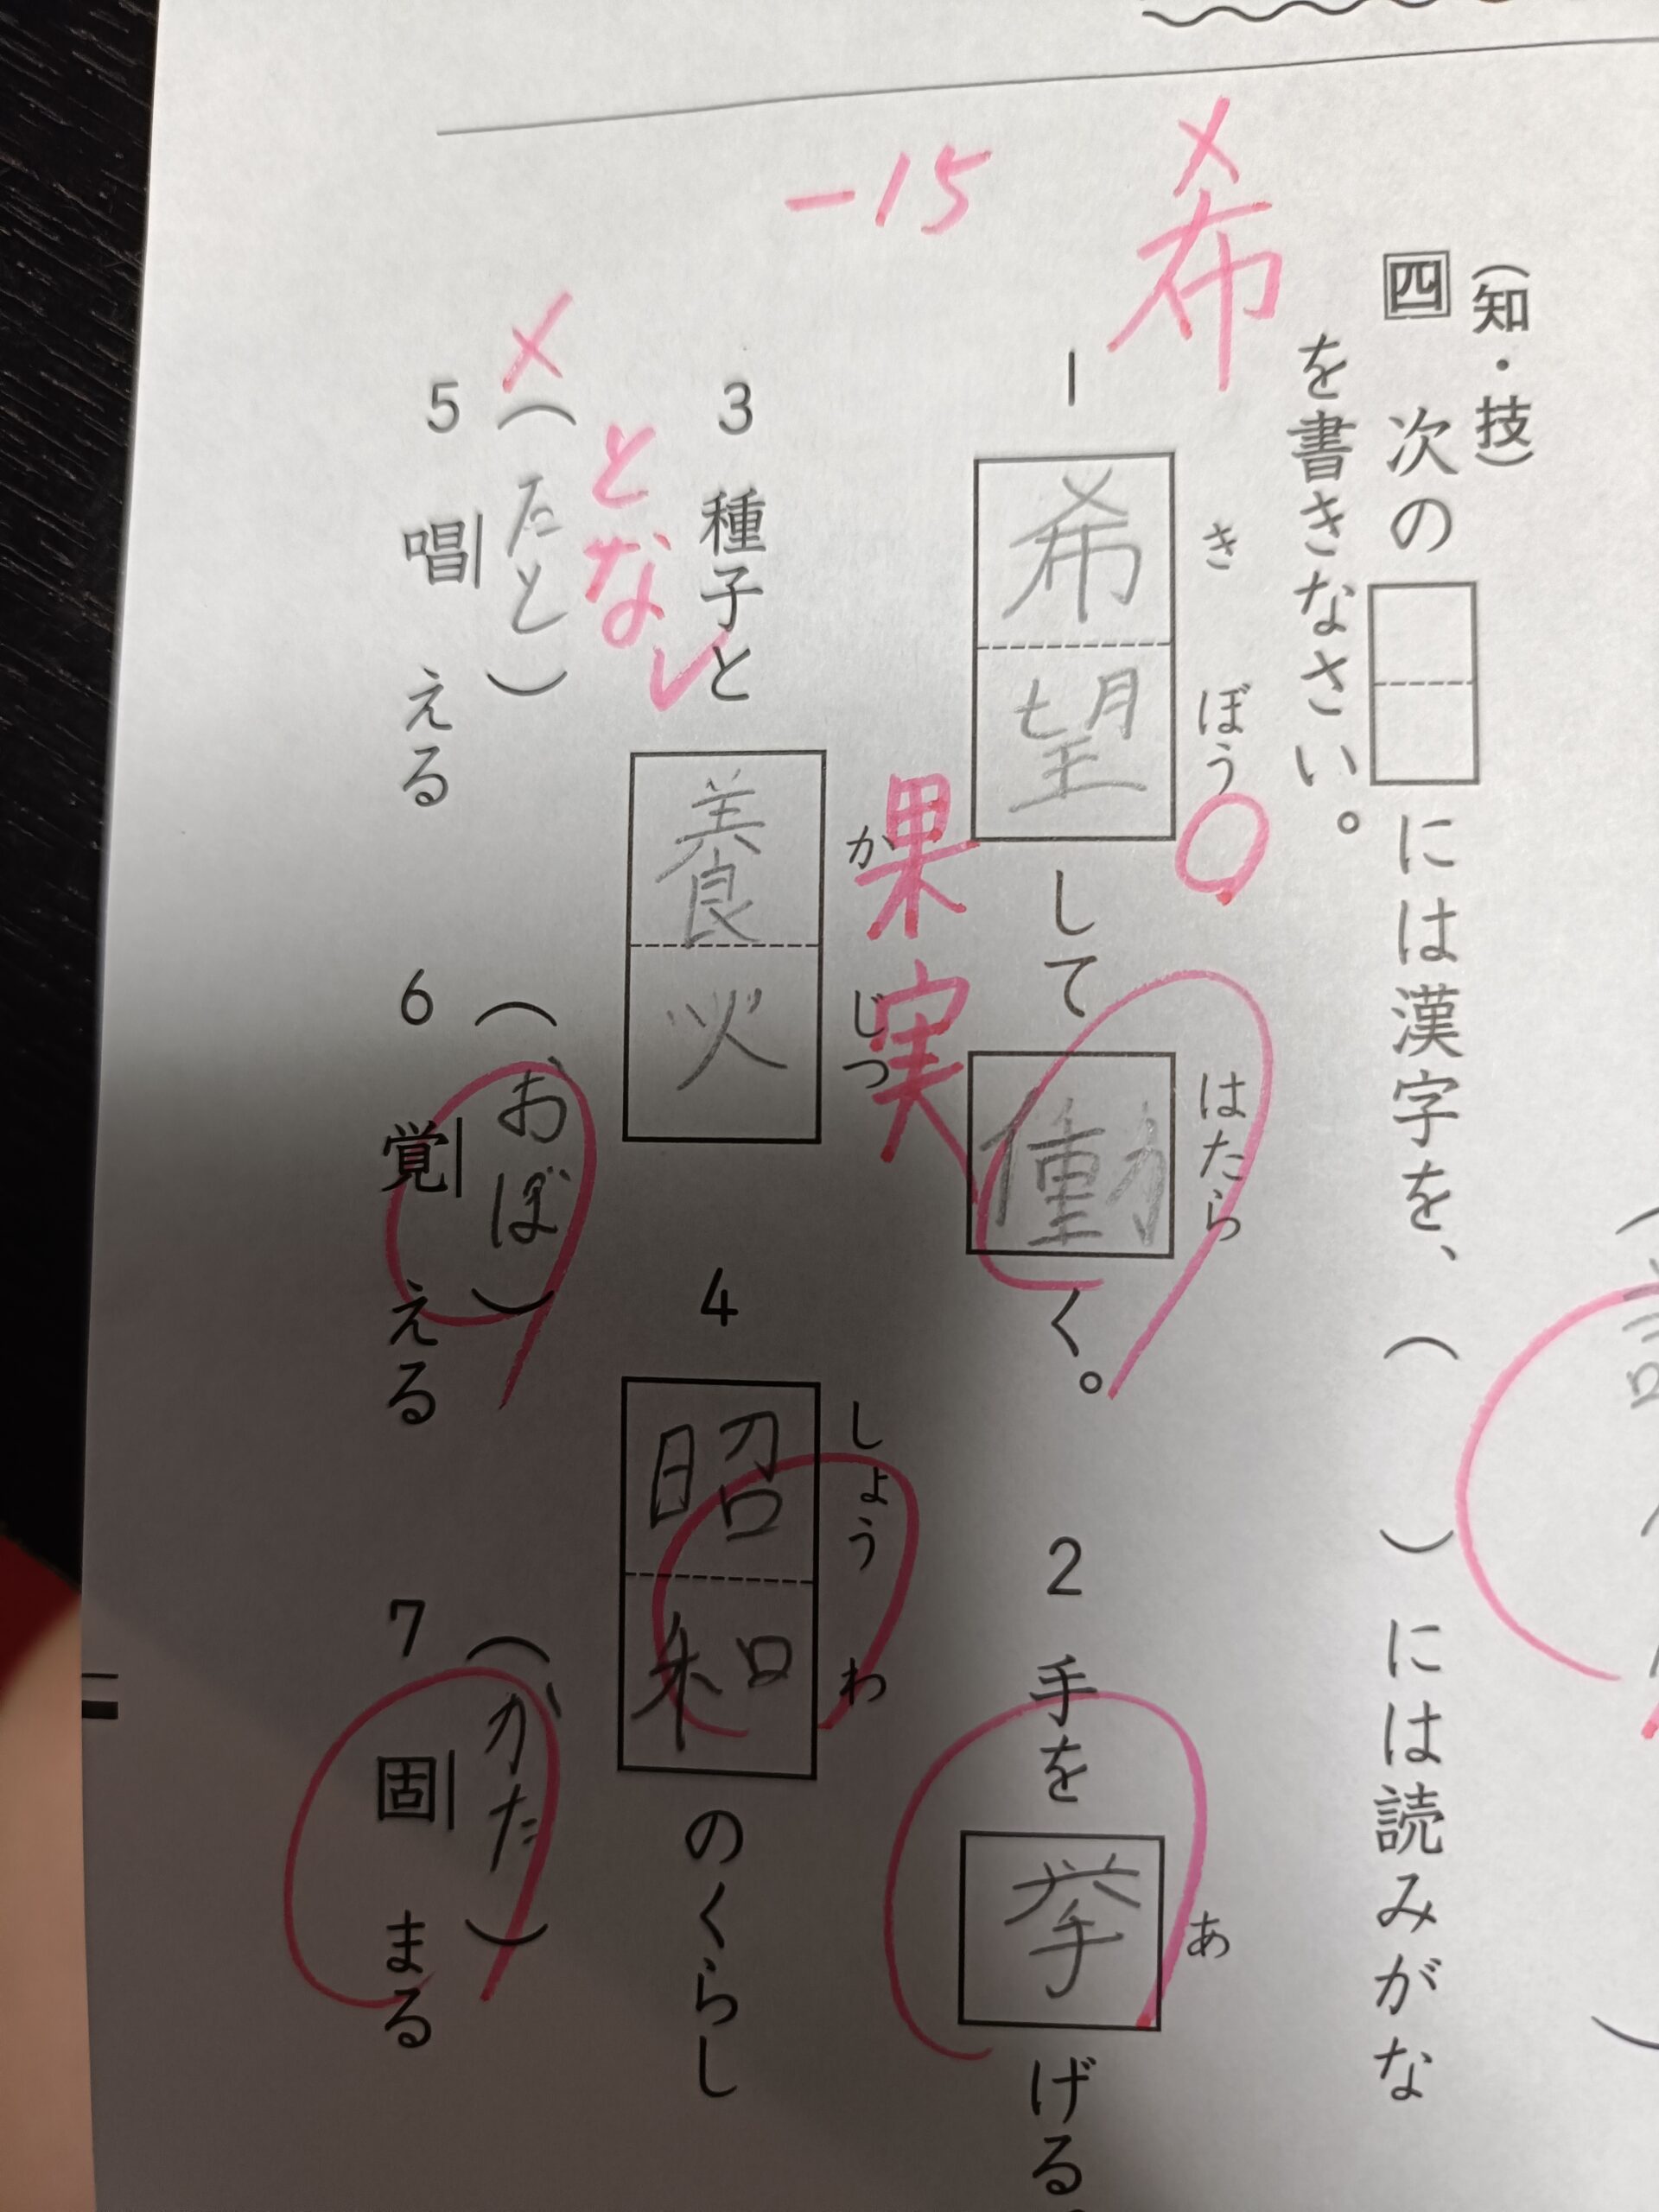 (知・技)
四 次の には漢字を、( )には読みがな
を書きなさい。
希
き ぼう はたら
1 希望 して 働 く。
あ
2 手を 挙 げる。
-15
果実
か じつ
3 種子と 養火
しょう わ
4 昭和 のくらし
とな
(たと)
5 唱える
(おぼ)
6 覚える
(かた)
7 固まる